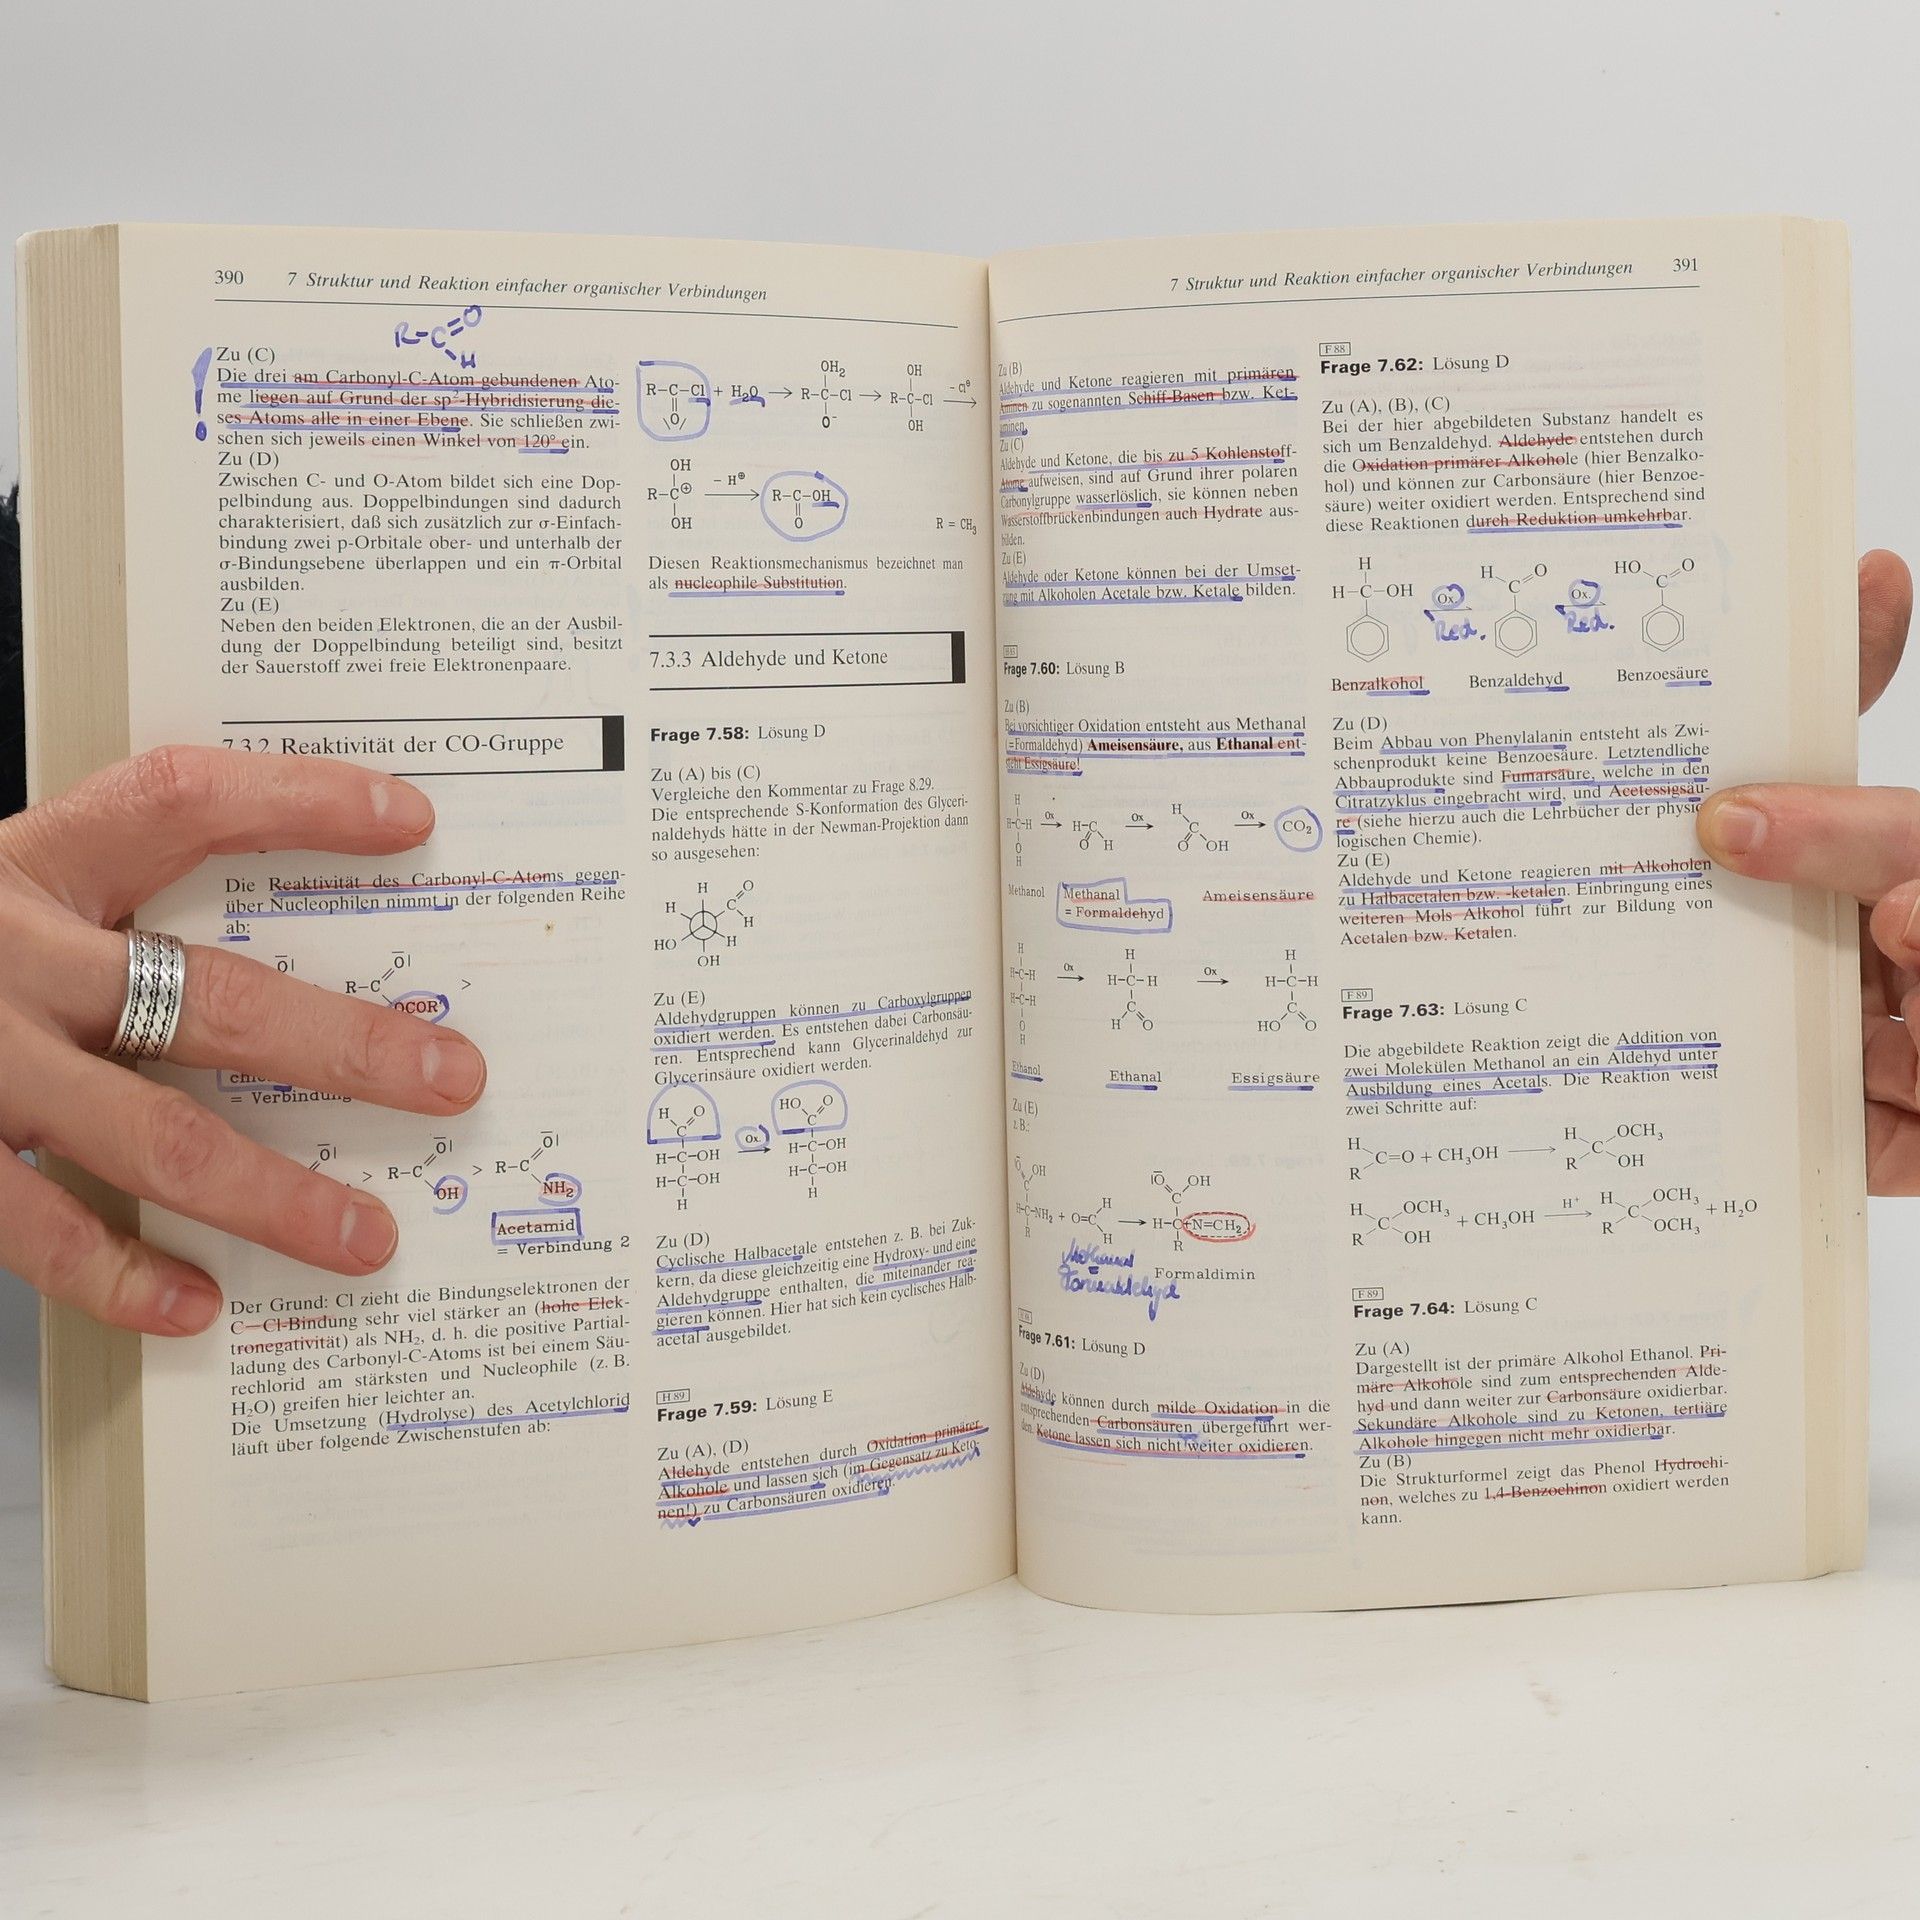 390 7 Struktur und Reaktion einfacher organischer Verbindungen
R-C=O
H
Zu (C)
Die drei am Carbonyl-C-Atom gebundenen Ato-
me liegen auf Grund der sp²-Hybridisierung die-
ses Atoms alle in einer Ebene. Sie schließen zwi-
schen sich jeweils einen Winkel von 120° ein.
Zu (D)
Zwischen C- und O-Atom bildet sich eine Dop-
pelbindung aus. Doppelbindungen sind dadurch
charakterisiert, daß sich zusätzlich zur σ-Einfach-
bindung zwei p-Orbitale ober- und unterhalb der
σ-Bindungsebene überlappen und ein π-Orbital
ausbilden.
Zu (E)
Neben den beiden Elektronen, die an der Ausbil-
dung der Doppelbindung beteiligt sind, besitzt
der Sauerstoff zwei freie Elektronenpaare.
7.3.2 Reaktivität der CO-Gruppe
Die Reaktivität des Carbonyl-C-Atoms gegen-
über Nucleophilen nimmt in der folgenden Reihe
ab:
R-C O OCOR' >
= Verbindung
> R-C O OH > R-C O NH₂
Acetamid
= Verbindung 2
Der Grund: Cl zieht die Bindungselektronen der
C—Cl-Bindung sehr viel stärker an (hohe Elek-
tronegativität) als NH₂, d. h. die positive Partial-
ladung des Carbonyl-C-Atoms ist bei einem Säu-
rechlorid am stärksten und Nucleophile (z. B.
H₂O) greifen hier leichter an.
Die Umsetzung (Hydrolyse) des Acetylchlorid
läuft über folgende Zwischenstufen ab:
OH₂ OH
R-C-Cl + H₂O → R-C-Cl → R-C-Cl - Cl⊖ →
O O⁻ OH
OH
R-C⊕ - H⊕ → R-C-OH
OH O R = CH₃
Diesen Reaktionsmechanismus bezeichnet man
als nucleophile Substitution.
7.3.3 Aldehyde und Ketone
Frage 7.58: Lösung D
Zu (A) bis (C)
Vergleiche den Kommentar zu Frage 8.29.
Die entsprechende S-Konformation des Glyceri-
naldehyds hätte in der Newman-Projektion dann
so ausgesehen:
H O
H C
H
HO H
OH
Zu (E)
Aldehydgruppen können zu Carboxylgruppen
oxidiert werden. Es entstehen dabei Carbonsäu-
ren. Entsprechend kann Glycerinaldehyd zur
Glycerinsäure oxidiert werden.
H O HO O
C Ox. C
H-C-OH → H-C-OH
H-C-OH H-C-OH
H H
Zu (D)
Cyclische Halbacetale entstehen z. B. bei Zuk-
kern, da diese gleichzeitig eine Hydroxy- und eine
Aldehydgruppe enthalten, die miteinander rea-
gieren können. Hier hat sich kein cyclisches Halb-
acetal ausgebildet.
H 89
Frage 7.59: Lösung E
Zu (A), (D)
Aldehyde entstehen durch Oxidation primärer
Alkohole und lassen sich (im Gegensatz zu Keto-
nen!) zu Carbonsäuren oxidieren.
7 Struktur und Reaktion einfacher organischer Verbindungen 391
Zu (B)
Aldehyde und Ketone reagieren mit primären
Aminen zu sogenannten Schiff-Basen bzw. Ket-
iminen.
Zu (C)
Aldehyde und Ketone, die bis zu 5 Kohlenstoff-
Atome aufweisen, sind auf Grund ihrer polaren
Carbonylgruppe wasserlöslich, sie können neben
Wasserstoffbrückenbindungen auch Hydrate aus-
bilden.
Zu (E)
Aldehyde oder Ketone können bei der Umset-
zung mit Alkoholen Acetale bzw. Ketale bilden.
Frage 7.60: Lösung B
Zu (B)
Bei vorsichtiger Oxidation entsteht aus Methanal
(=Formaldehyd) Ameisensäure, aus Ethanal ent-
steht Essigsäure!
H H
H-C-H Ox → H-C Ox → C Ox → CO₂
O O H O OH
H
Methanol Methanal Ameisensäure
= Formaldehyd
H H H
H-C-H Ox → H-C-H Ox → H-C-H
H-C-H C C
O H O HO O
H
Ethanol Ethanal Essigsäure
Zu (E)
z. B.:
O OH IO OH
C H C
H-C-NH₂ + O=C → H-C-N=CH₂
R H R
Methanal Formaldimin
=
Formaldehyd
Frage 7.61: Lösung D
Zu (D)
Aldehyde können durch milde Oxidation in die
entsprechenden Carbonsäuren übergeführt wer-
den. Ketone lassen sich nicht weiter oxidieren.
F 88
Frage 7.62: Lösung D
Zu (A), (B), (C)
Bei der hier abgebildeten Substanz handelt es
sich um Benzaldehyd. Aldehyde entstehen durch
die Oxidation primärer Alkohole (hier Benzalko-
hol) und können zur Carbonsäure (hier Benzoe-
säure) weiter oxidiert werden. Entsprechend sind
diese Reaktionen durch Reduktion umkehrbar.
H H O HO O
H-C-OH Ox. C Ox. C
Red. Red.
Benzalkohol Benzaldehyd Benzoesäure
Zu (D)
Beim Abbau von Phenylalanin entsteht als Zwi-
schenprodukt keine Benzoesäure. Letztendliche
Abbauprodukte sind Fumarsäure, welche in den
Citratzyklus eingebracht wird, und Acetessigsäu-
re (siehe hierzu auch die Lehrbücher der physio
logischen Chemie).
Zu (E)
Aldehyde und Ketone reagieren mit Alkoholen
zu Halbacetalen bzw. -ketalen. Einbringung eines
weiteren Mols Alkohol führt zur Bildung von
Acetalen bzw. Ketalen.
F 89
Frage 7.63: Lösung C
Die abgebildete Reaktion zeigt die Addition von
zwei Molekülen Methanol an ein Aldehyd unter
Ausbildung eines Acetals. Die Reaktion weist
zwei Schritte auf:
H H OCH₃
C=O + CH₃OH → C
R R OH
H OCH₃ H⁺ H OCH₃
C + CH₃OH → C + H₂O
R OH R OCH₃
F 89
Frage 7.64: Lösung C
Zu (A)
Dargestellt ist der primäre Alkohol Ethanol. Pri-
märe Alkohole sind zum entsprechenden Alde-
hyd und dann weiter zur Carbonsäure oxidierbar.
Sekundäre Alkohole sind zu Ketonen, tertiäre
Alkohole hingegen nicht mehr oxidierbar.
Zu (B)
Die Strukturformel zeigt das Phenol Hydrochi-
non, welches zu 1,4-Benzochinon oxidiert werden
kann.